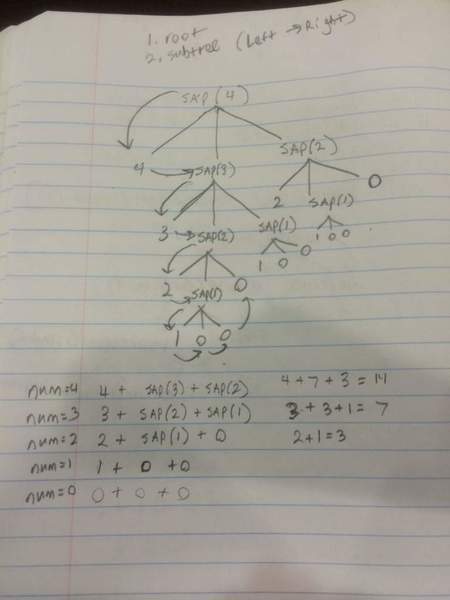 1. root
2. subtree (Left → Right)
SAP(4)
4 SAP(3) SAP(2)
3 SAP(2) SAP(1) 2 SAP(1) 0
2 SAP(1) 0 1 0 0 1 0 0
1 0 0
num=4 4 + SAP(3) + SAP(2) 4+7+3=14
num=3 3 + SAP(2) + SAP(1) 3+3+1=7
num=2 2 + SAP(1) + 0 2+1=3
num=1 1 + 0 + 0
num=0 0 + 0 + 0